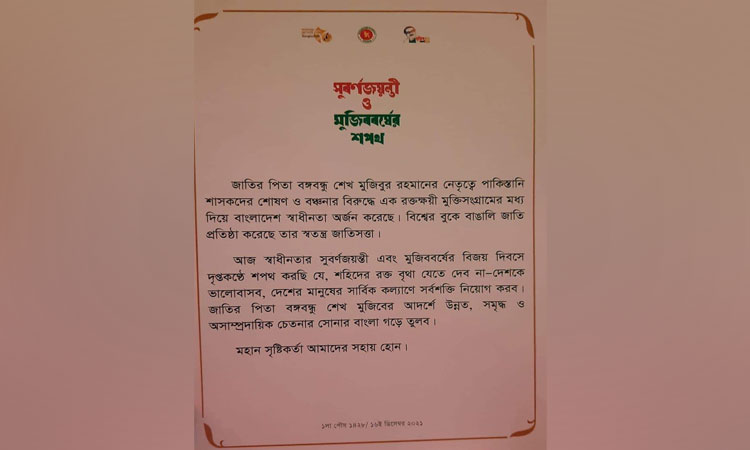 সুবর্ণজয়ন্তী
ও
মুজিববর্ষের
শপথ
জাতির পিতা বঙ্গবন্ধু শেখ মুজিবুর রহমানের নেতৃত্বে পাকিস্তানি
শাসকদের শোষণ ও বঞ্চনার বিরুদ্ধে এক রক্তক্ষয়ী মুক্তিসংগ্রামের মধ্য
দিয়ে বাংলাদেশ স্বাধীনতা অর্জন করেছে। বিশ্বের বুকে বাঙালি জাতি
প্রতিষ্ঠা করেছে তার স্বতন্ত্র জাতিসত্তা।
আজ স্বাধীনতার সুবর্ণজয়ন্তী এবং মুজিববর্ষের বিজয় দিবসে
দৃপ্তকণ্ঠে শপথ করছি যে, শহিদের রক্ত বৃথা যেতে দেব না–দেশকে
ভালোবাসব, দেশের মানুষের সার্বিক কল্যাণে সর্বশক্তি নিয়োগ করব।
জাতির পিতা বঙ্গবন্ধু শেখ মুজিবের আদর্শে উন্নত, সমৃদ্ধ ও
অসাম্প্রদায়িক চেতনার সোনার বাংলা গড়ে তুলব।
মহান সৃষ্টিকর্তা আমাদের সহায় হোন।
১লা পৌষ ১৪২৮/ ১৬ই ডিসেম্বর ২০২১